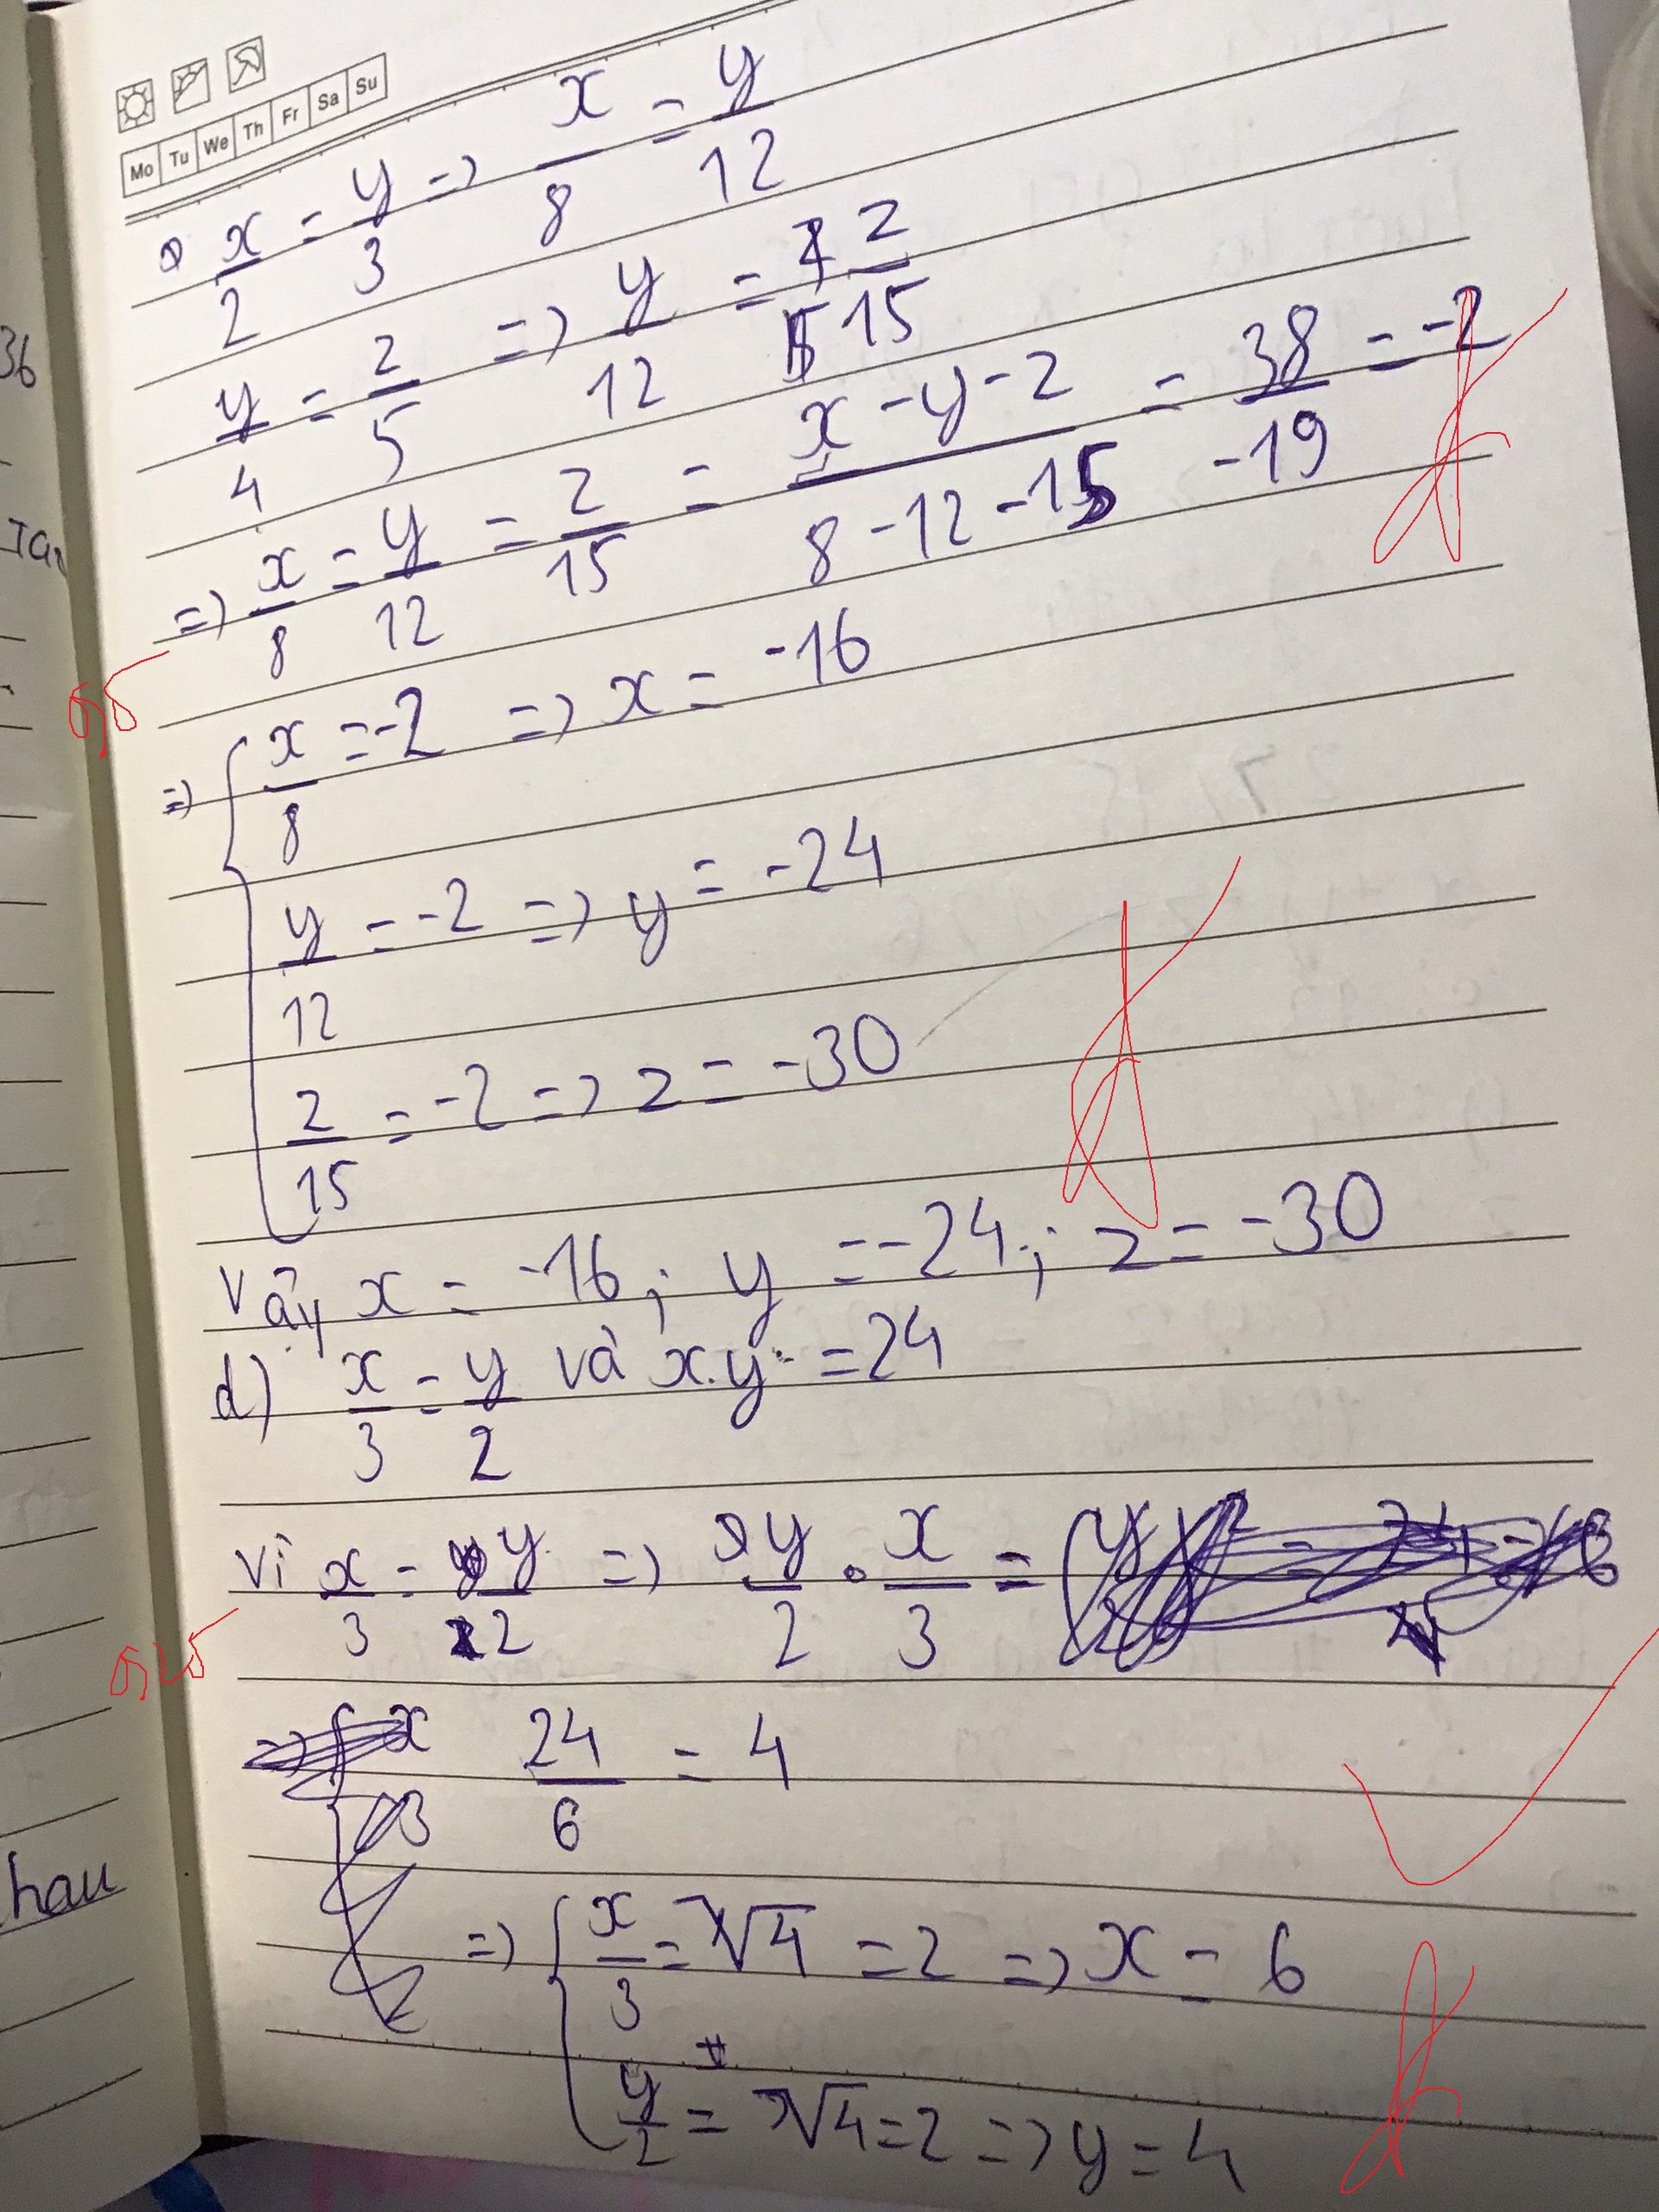 Mo Tu We Th Fr Sa Su
x/2 = y/3 => x/8 = y/12
y/4 = z/5 => y/12 = z/15
=> x/8 = y/12 = z/15 = x-y-z/8-12-15 = 38/-19 = -2
0,5
=> { x/8 = -2 => x = -16
y/12 = -2 => y = -24
z/15 = -2 => z = -30
Vậy x = -16; y = -24; z = -30
d) x/3 = y/2 và x.y = 24
Vì x/3 = y/2 => y/2 . x/3 =
0,25
24/6 = 4
=> { x/3 = √4 = 2 => x = 6
y/2 = √4 = 2 => y = 4
36
hau